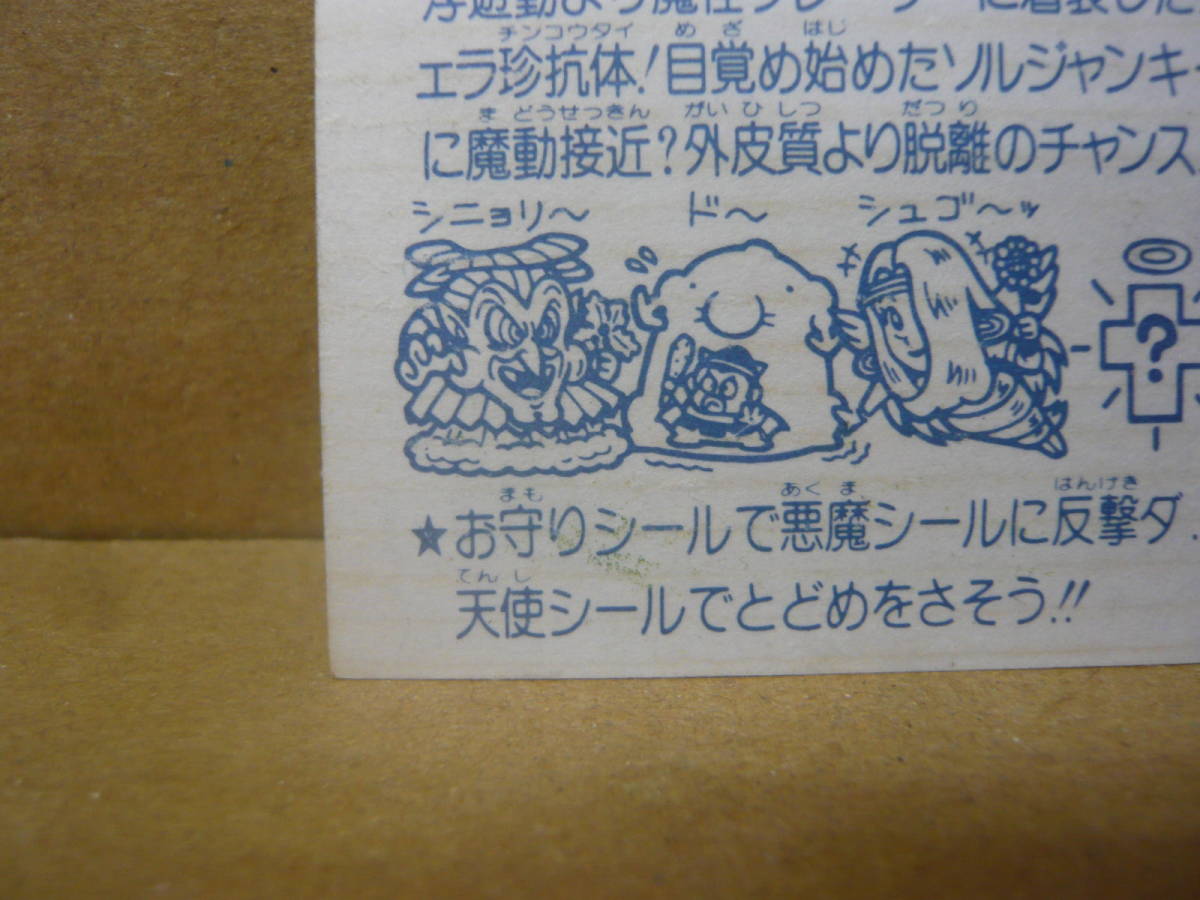 チンコウタイ め ざ はじ
エラ珍抗体!目覚め始めたソルジャンキー
ま どうせっきん がい ひ しつ だつ り
に魔動接近?外皮質より脱離のチャンス
シニョリ〜 ド〜 シュゴ〜ッ
?
まも あく ま はんげき
★お守りシールで悪魔シールに反撃ダ.
てん し
天使シールでとどめをさそう!!